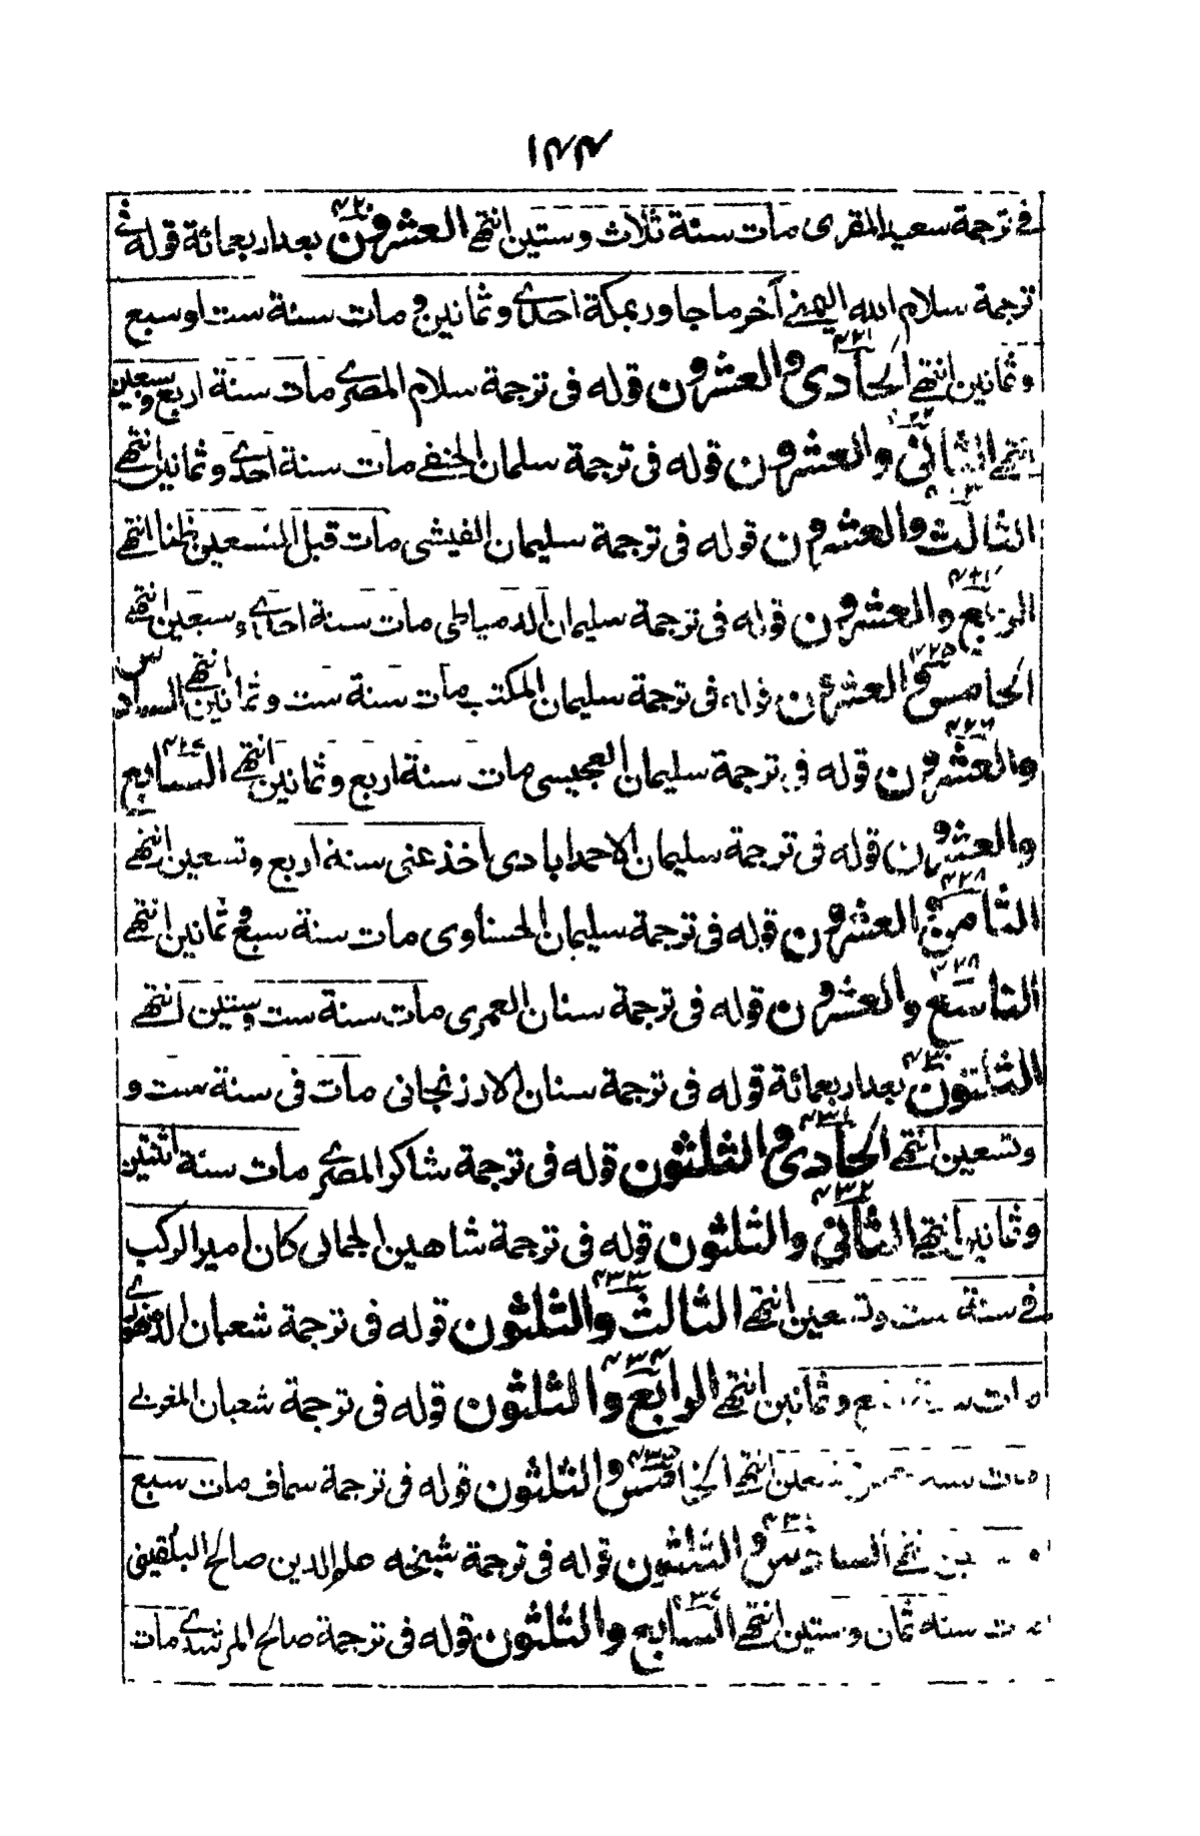 ١٨٧٢
في ترجمة سعيد المقرى مات سنة ثلاث وستين انتهى العشرون ٤٢٠ بعد اربعمائة قوله في
ترجمة سلام الله اليمني آخر ما جاور بمكة احدى وثمانين ومات سنة ست او سبع
وثمانين انتهى الحادى والعشرون ٤٢١ قوله فى ترجمة سلام المصرى مات سنة اربع وسبعين
انتهى الثانى والعشرون ٤٢٢ قوله فى ترجمة سلمان الحنفى مات سنة احدى وثمانين انتهى
الثالث والعشرون قوله فى ترجمة سليمان الفيشى مات قبل التسعين ظنا انتهى
الرابع والعشرون قوله فى ترجمة سليمان الدمياطى مات سنة احدى سبعين انتهى
الخامس والعشرون ٤٢٥ قوله فى ترجمة سليمان المكتب مات سنة ست وثمانين انتهى السادس
والعشرون ٤٢٦ قوله فى ترجمة سليمان العجيسى مات سنة اربع وثمانين انتهى السابع ٤٢٧
والعشرون قوله فى ترجمة سليمان الاحمدابادى اخذ عنى سنة اربع وتسعين انتهى
الثامن والعشرون ٤٢٨ قوله فى ترجمة سليمان الحسناوى مات سنة سبع وثمانين انتهى
التاسع والعشرون قوله فى ترجمة سنان العمرى مات سنة ست وستين انتهى
الثلثون ٤٣٠ بعد اربعمائة قوله فى ترجمة سنان الارزنجانى مات فى سنة ست و
وتسعين انتهى الحادى والثلثون ٤٣١ قوله فى ترجمة شاكر المصرى مات سنة اثنتين
وثمانين انتهى الثانى والثلثون ٤٣٢ قوله فى ترجمة شاهين الجمالى كان امير الركب
فى سنة ست وتسعين انتهى الثالث والثلثون ٤٣٣ قوله فى ترجمة شعبان
مات وثمانين انتهى الرابع والثلثون ٤٣٤ قوله فى ترجمة شعبان المغربى
مات انتهى الخامس والثلثون ٤٣٥ قوله فى ترجمة سماف مات سبع
انتهى السادس والثلثون ٤٣٦ قوله فى ترجمة شيخه علم الدين صالح البلقينى
مات سنة ثمان وستين انتهى السابع والثلثون ٤٣٧ قوله فى ترجمة صالح المرشدى مات